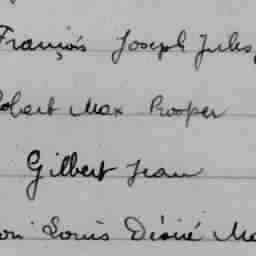 François Joseph Jules,
Robert Max Prosper
Gilbert Jean
Louis Désiré